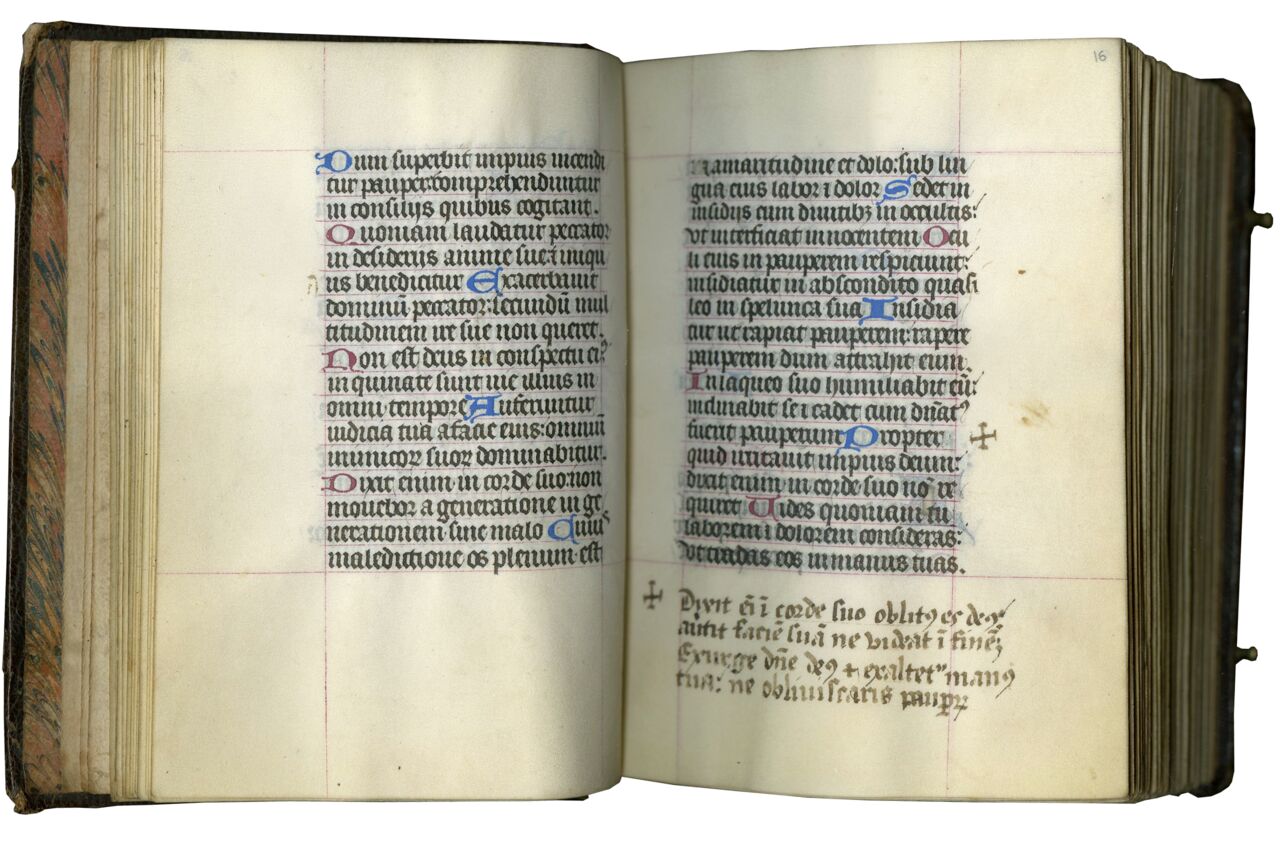 Dum superbit impius incendi
tur pauper: comprehenduntur
in consiliis quibus cogitant.
Quoniam laudatur peccator
in desideriis anime sue: i iniqu
us benedicitur Exacerbavit
dominū peccator: secundū mul
titudinem ire sue non queret.
Non est deus in conspectu ei9
inquinate sunt vie illius in
omni tempore Auferuntur
iudicia tua a facie eius: omniū
inimicoꝝ suoꝝ dominabitur.
Dixit enim in corde suo: non
movebor a generatione in ge
nerationem sine malo Cuius
maledictione os plenum est
16
et amaritudine et dolo: sub lin
gua eius labor i dolor Sedet in
insidiis cum divitibꝫ in occultis:
vt interficiat innocentem Ocu
li eius in pauperem respiciunt:
insidiatur in abscondito quasi
leo in spelunca sua Insidia
tur ut rapiat pauperem: rapere
pauperem dum attrahit eum.
In laqueo suo humiliabit eū:
inclinabit se i cadet cum dn̄at9
fuerit pauperum Propter ✠
quid irritavit impius deum:
dixit enim in corde suo nō re
quiret Vides quoniam tu
laborem i dolorem consideras:
vt tradas eos in manus tuas.
✠ Dixit ei̅ ī corde suo oblit9 es de9:
autit faciē suā ne videat ī finē:
Exurge dn̄e de9 + exaltet manꝰ
tua: ne obliviscaris pauꝑꝝ